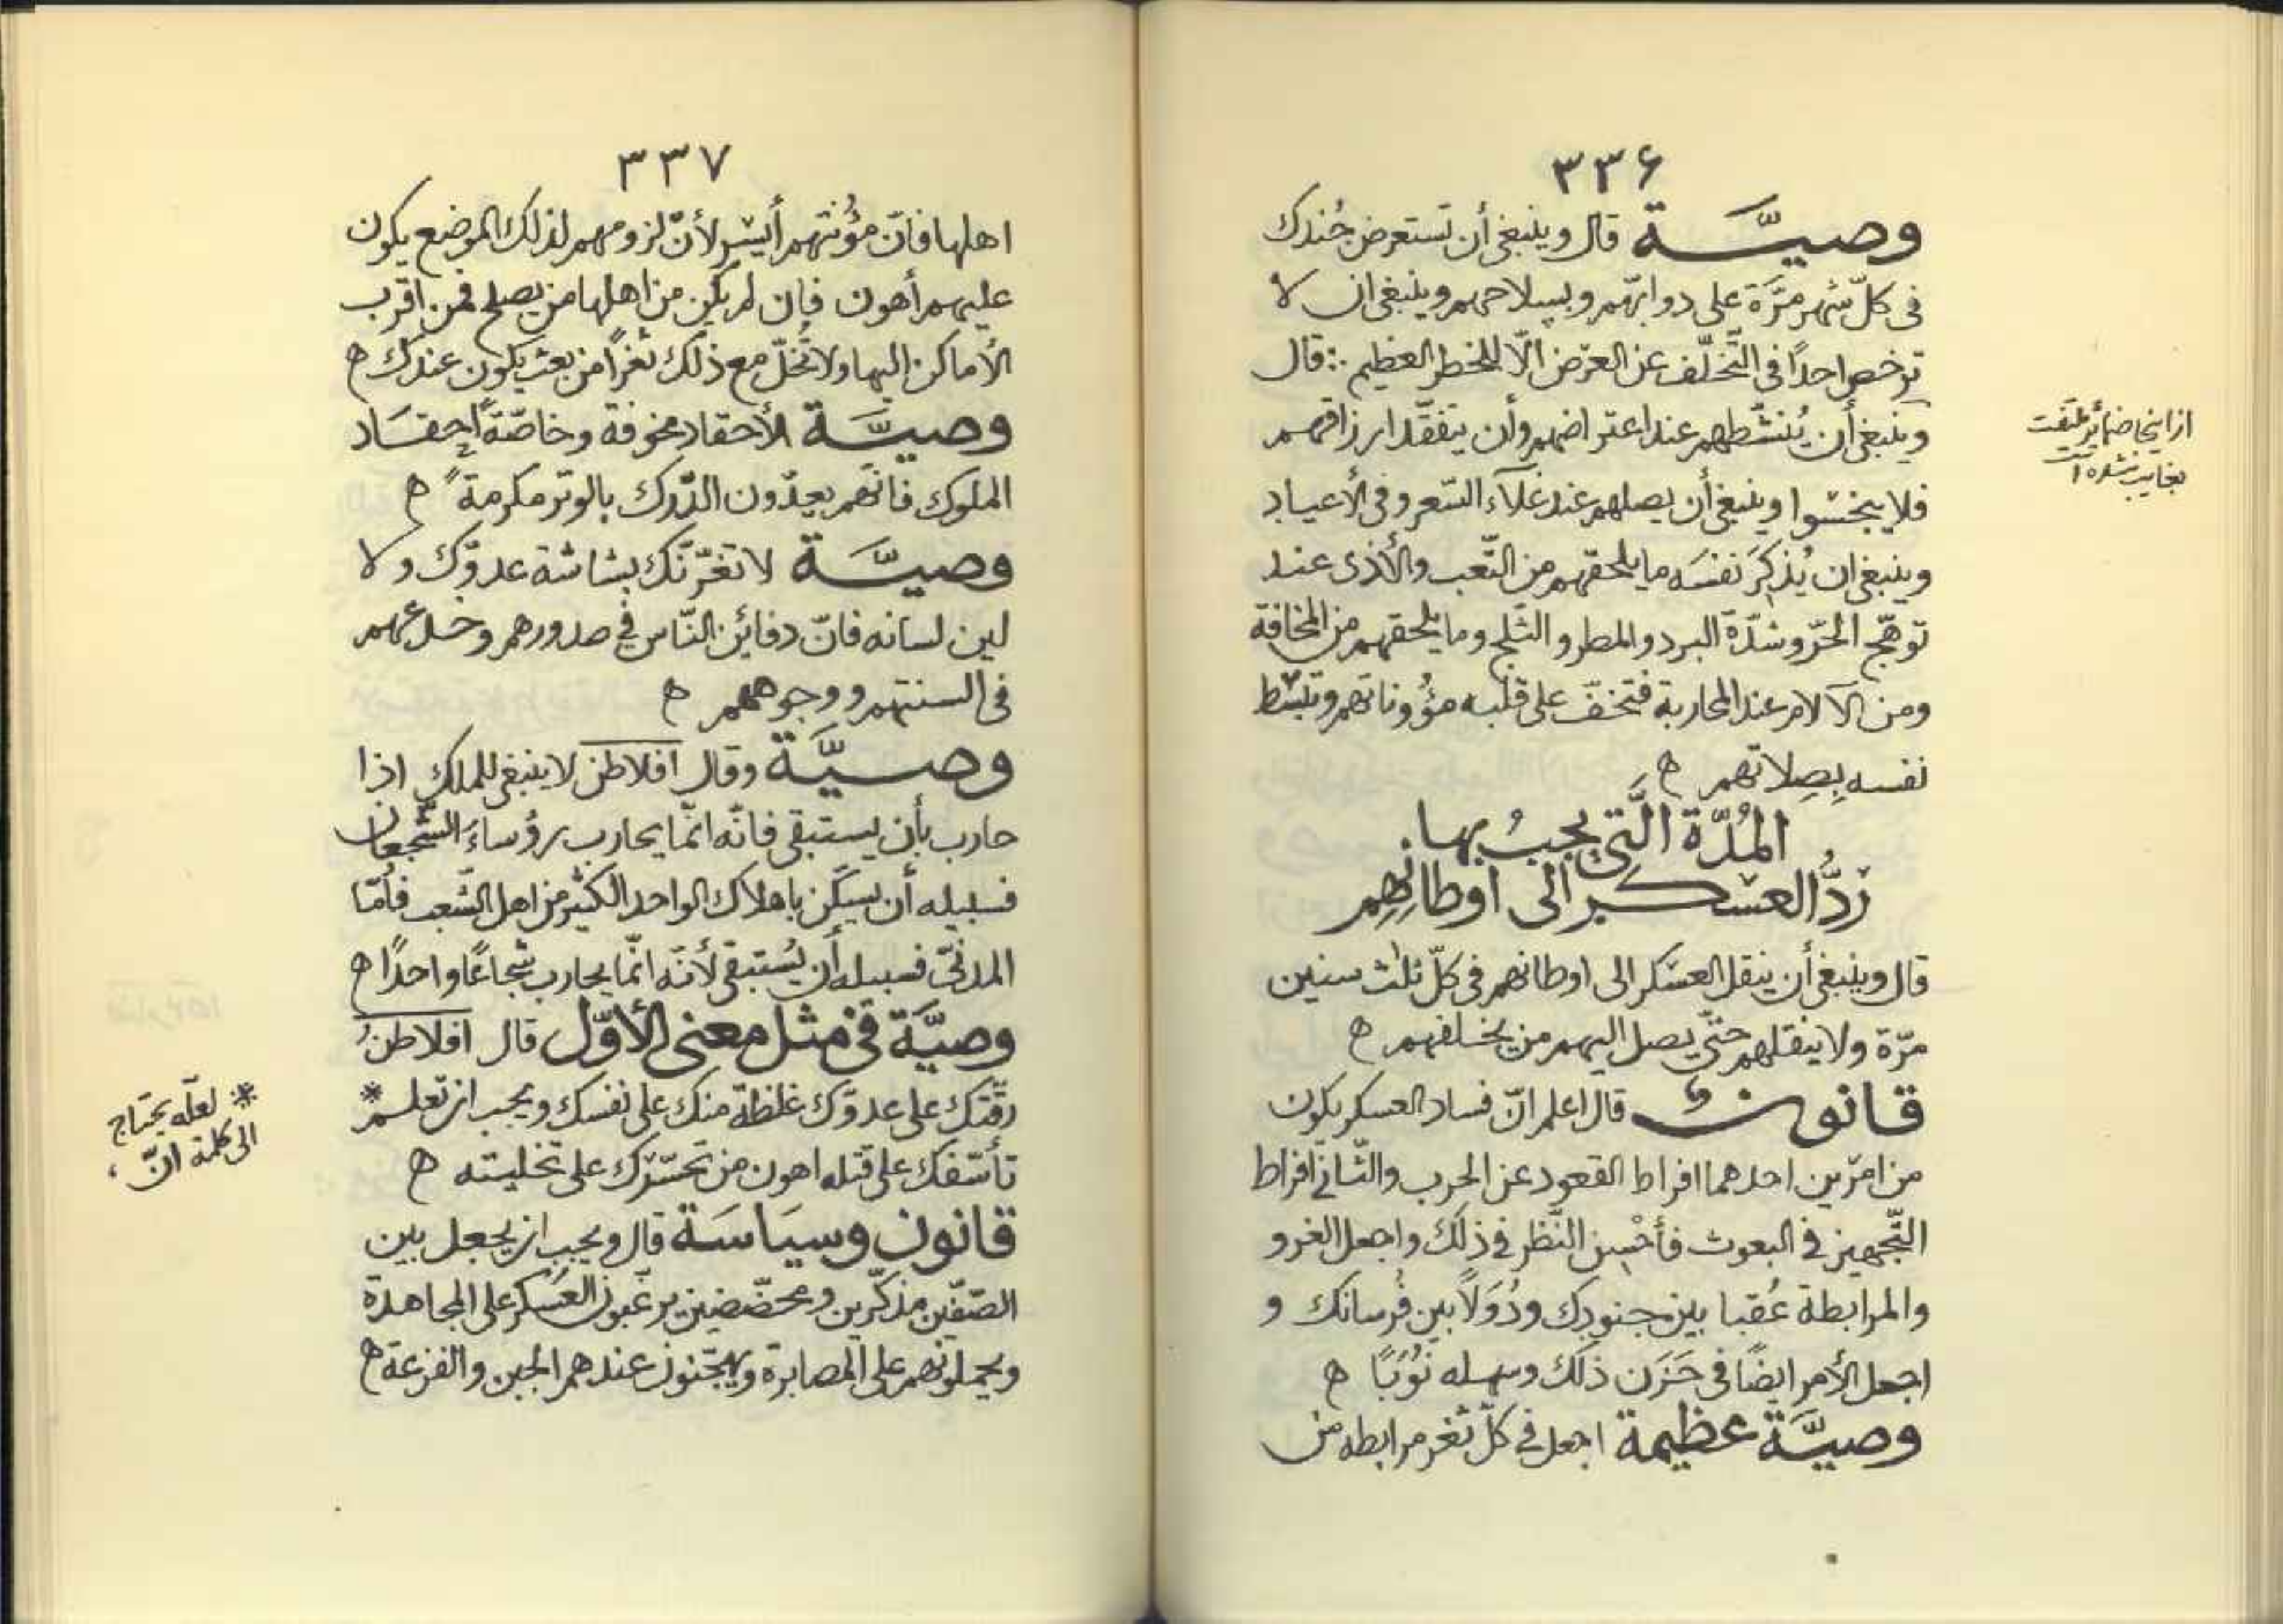 ٣٣۶
وصيّة قال وينبغى أن تستعرض جُندك
فى كلّ شهر مرّة على دوابّهم وبسلاحهم وينبغى ان لا
ترخص احدًا فى التّخلّف عن العرض الّا للخطر العظيم ∴ قال
وينبغى أن يُنشّطهم عند اعتراضهم وأن يتفقّد ارزاقهم
فلا يبخسوا وينبغى أن يصلهم عند غلآء السّعر وفى الأعياد
وينبغى ان يُذكِرَ نفسَه ما يلحقهم من التّعب والأذى عند
توهّج الحرّ وشدّة البرد والمطر والثّلج وما يلحقهم من المخافة
ومن الآلام عند المحاربة فتخفّ على قلبه مؤُوناتهم وتبسّط
نفسه بِصِلاتهم ه
المُدّة الَّتى يجبُ بها
ردُّ العسكر الى اوطانِهِم
قال وينبغى أن ينقل العسكر الى اوطانهم فى كلّ ثلث سنين
مرّة ولا ينقلهم حتّى يصل اليهم من يخلفهم ه
قانونٌ قال اعلم انّ فساد العسكر يكون
من امرين احدهما افراط القعود عن الحرب والثّانى افراط
التّجهيز فى البعوث فأحْسِن النّظر فى ذلك واجعل الغزو
والمرابطة عُقبا بين جنودك ودُوَلاً بين فُرسانك و
اجعل الأمر ايضًا فى حَزَن ذلك وسهله نُوَبًا ه
وصيّة عظيمة اجعل فى كلّ ثغر مرابطه من
ازاينجا ضمائر ملتفت
بغايب شده آ
٣٣٧
اهلها فانّ مؤُنتهم أيسر لأنّ لزومهم لذلك الموضع يكون
عليهم أهون فإن لم يكن من اهلها من يصلح فمن اقرب
الأماكن اليها ولا تُخلّ مع ذلك ثغرًا من بعث يكون عندك ه
وصيّة الأحقاد مخوفة وخاصّةً احقاد
الملوك فانّهم يعدّون الدّرك بالوتر مكرمةً ه
وصيّة لا تغرّنّك بشاشة عدوّك ولا
لين لسانه فانّ دفائن النّاس فى صدورهم وخدعهم
فى السنتهم ووجوههم ه
وصيّة وقال افلاطن لا ينبغى للملك اذا
حارب بأن يستبقى فانّه انّما يحارب برؤساءَ الشّجعان
فسبيله أن يسكّن باهلاك الواحد الكثير من اهل الشّعب فأمّا
المدنىّ فسبيله أن يُستبقى لأنّه انّما يحارب شجاعًا واحدًا ه
وصيّة فى مثل معنى الأوّل قال افلاطنُ
رقّتك على عدوّك غلظة منك على نفسك ويجب ان تعلم *
تأسّفك على قتله اهون من تحسّرك على تخليته ه
قانون وسيَاسَة قال ويجب ان يجعل بين
الصّفّين مذكّرين ومحضّضين يرغّبون العَسكر على المجاهدة
ويحملونهم على المصابرة ويهجّنون عندهم الجبن والفزعة ه
* لعلّه يحتاج
الى كلمة انّ،